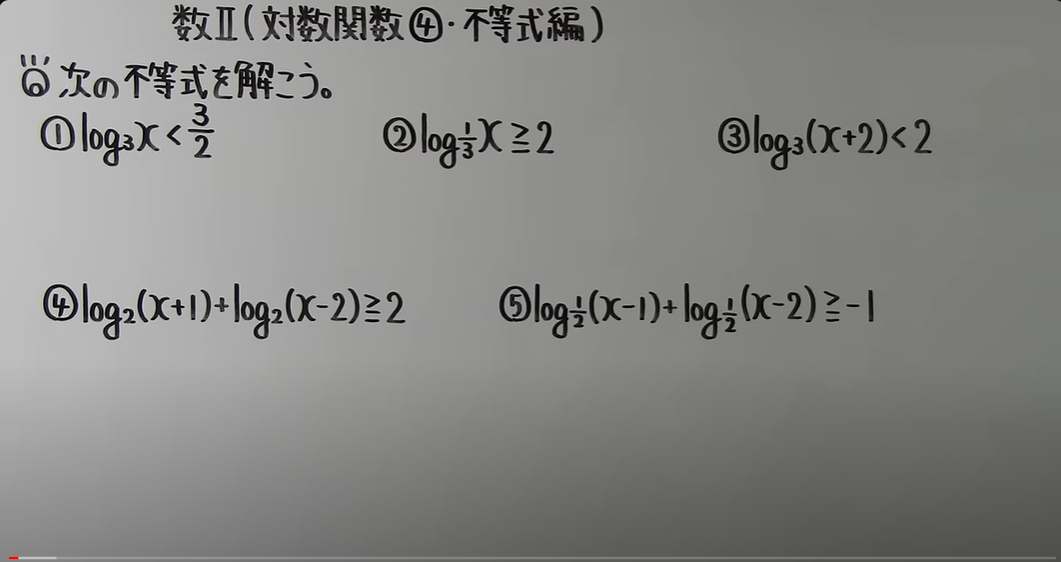 数Ⅱ(対数関数④・不等式編)
次の不等式を解こう。
①log₃x < 3/2 ②log_{1/3}x ≧ 2 ③log₃(x+2) < 2
④log₂(x+1)+log₂(x-2) ≧ 2 ⑤log_{1/2}(x-1)+log_{1/2}(x-2) ≧ -1